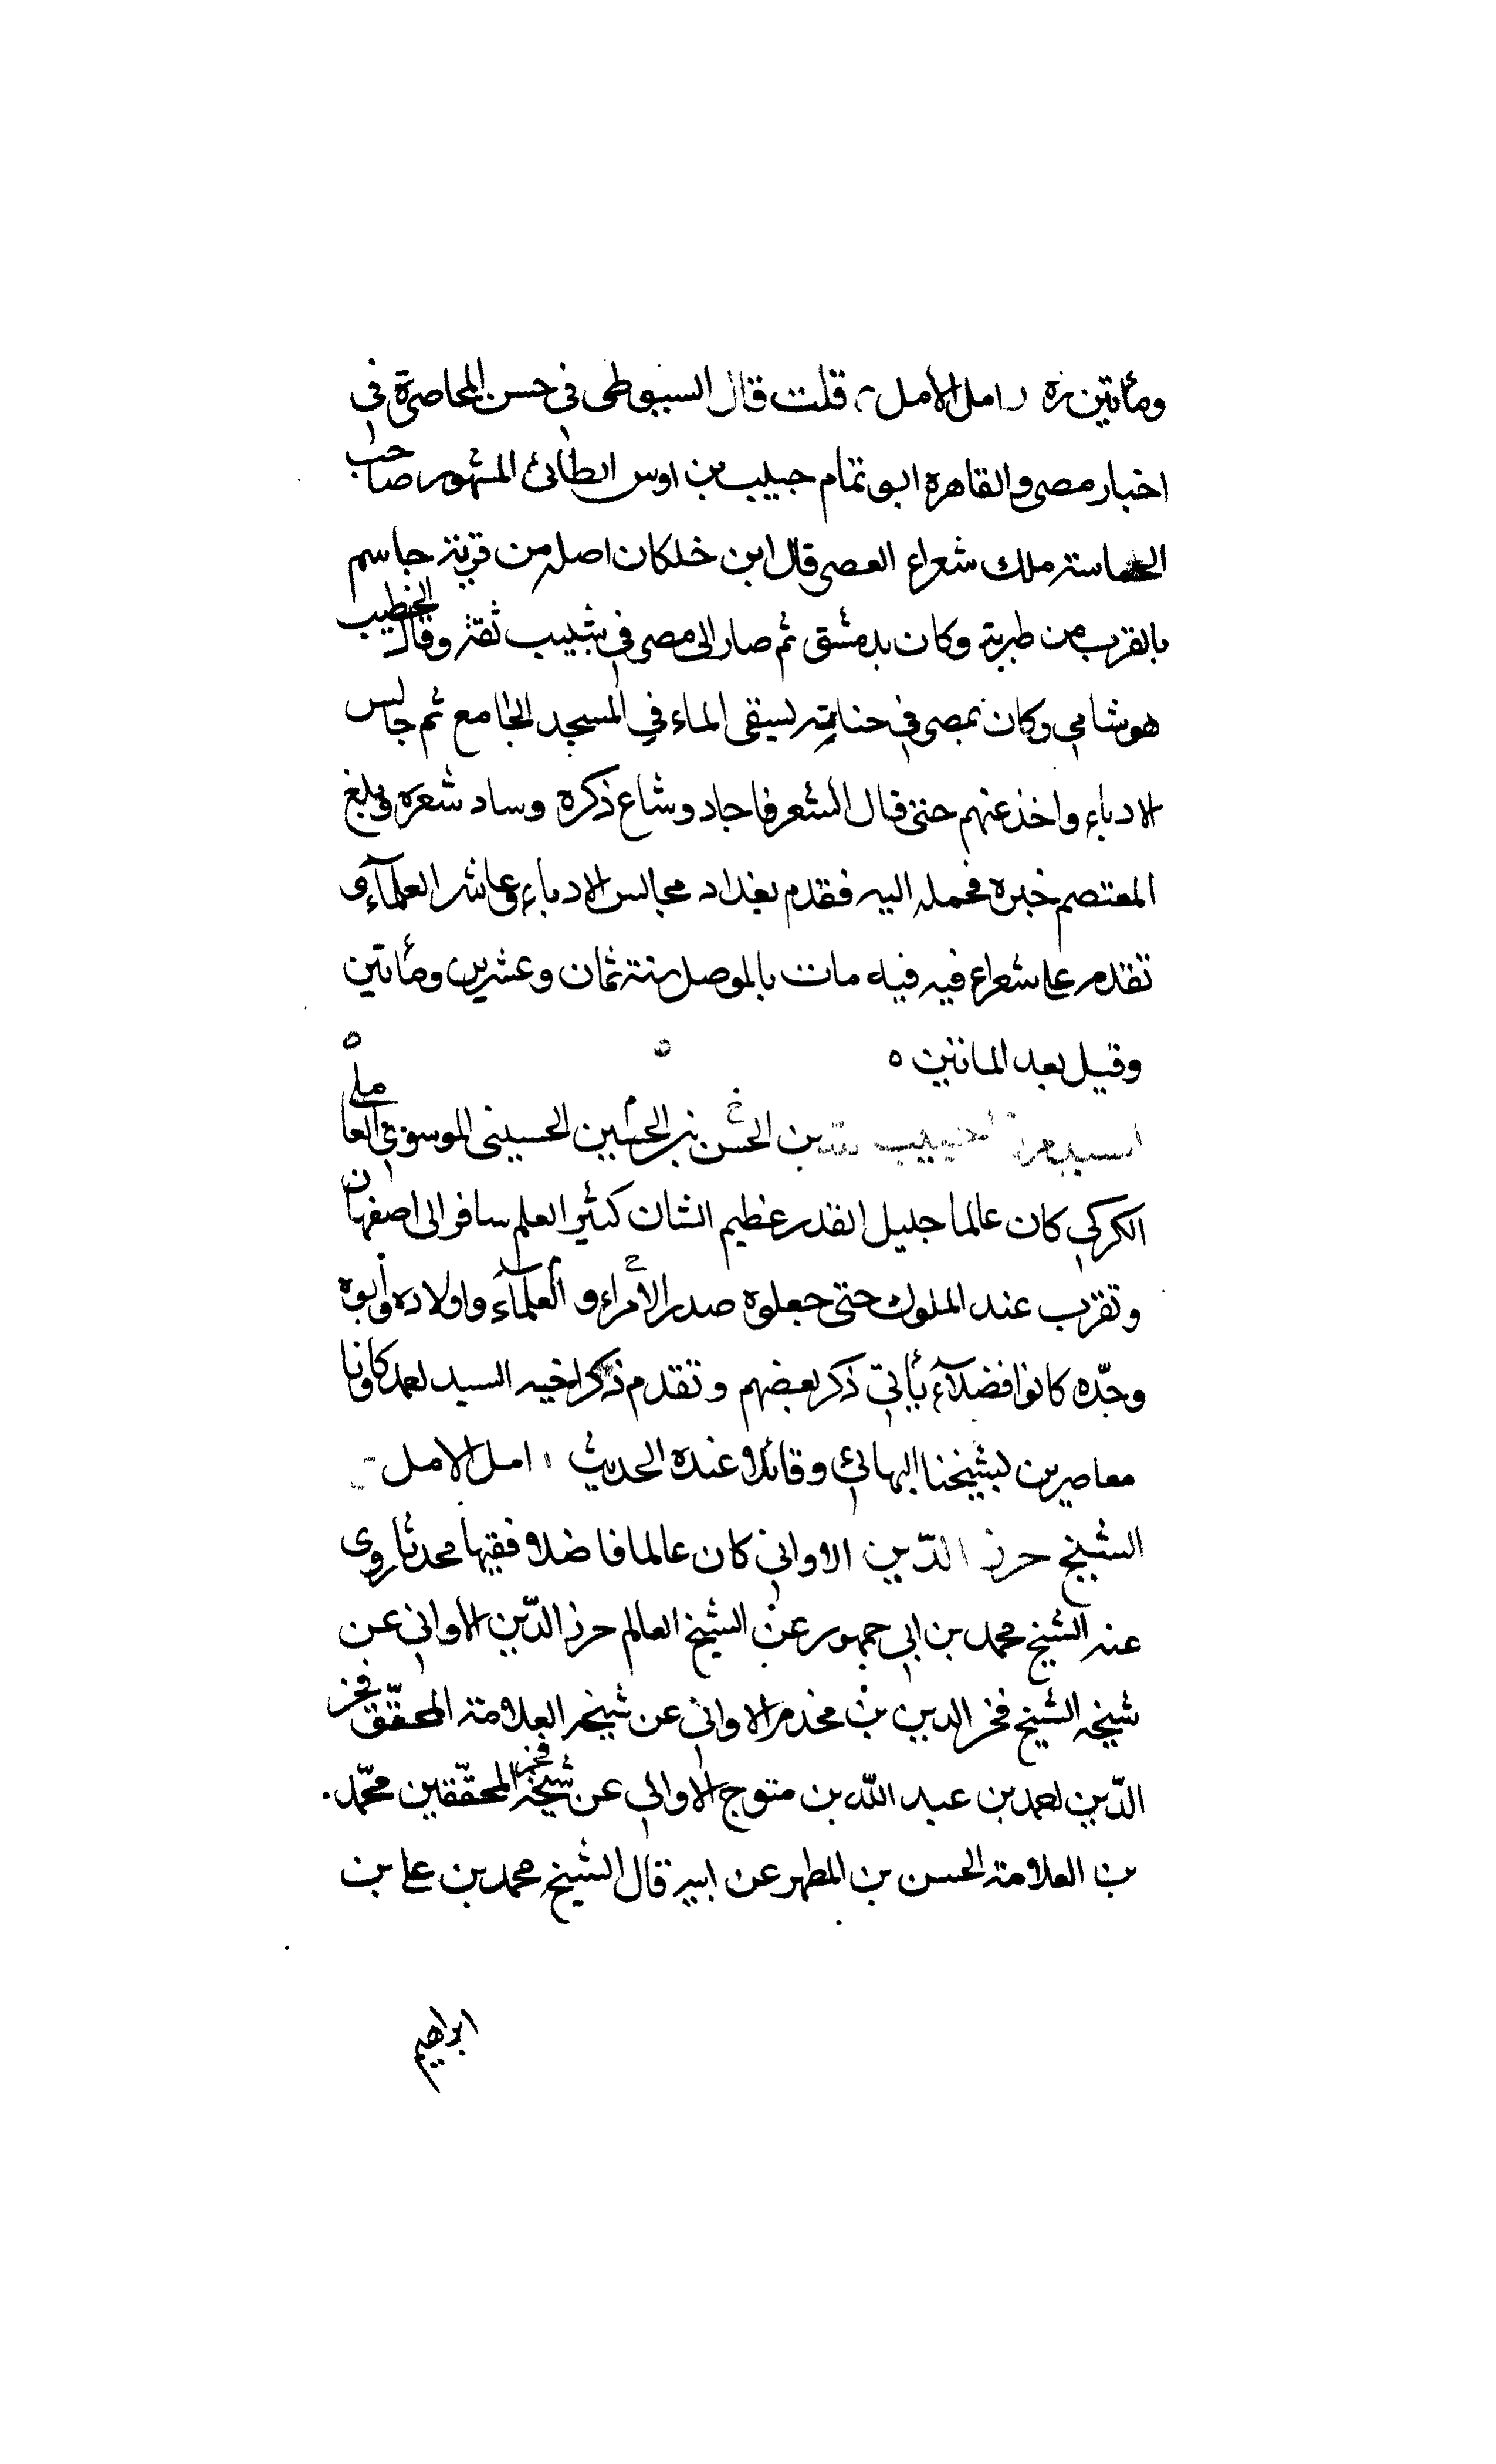 ومأتين ره امل الامل قلت قال السيوطى فى حسن المحاضرة فى
اخبار مصر والقاهرة ابو تمام حبيب بن اوس الطائى المشهور صاحب
الحماسة ملك شعراء العصر قال ابن خلكان اصله من قرية جاسم
بالقرب من طبرية وكان بدمشق ثم صار الى مصر فى شبيب ثقة وقال الخطيب
هو شامى وكان بمصر فى يسقى الماء فى المسجد الجامع ثم جالس
الادباء واخذ عنهم حتى قال الشعر فاجاد وشاع ذكره وساد شعره وبلغ
المعتصم خبره فحمله اليه فقدم بغداد مجالس الادباء وعاشر العلمآء و
تقدم على شعراء فيه فيه مات بالموصل سنة ثمان وعشرين ومأتين
وقيل بعد الماتين ه
السيد حبيب بن الحسن بن الحسين الحسينى الموسوى العاملى
الكركى كان عالما جليل القدر عظيم الشان كثير العلم سافر الى اصفهان
وتقرب عند الملوك حتى جعلوه صدر الأمراء و العلمآء واولاده وأبوه
وجّده كانوا فضلآء يأتى ذكر بعضهم وتقدم ذكر اخيه السيد احمد كانوا
معاصرين لشيخنا البهائى وقابلا عنده الحديث امل الامل
الشيخ حرز الدّين الاوالى كان عالما فاضلا فقيها محدثا روى
عنه الشيخ محمد بن ابى جمهور عن الشيخ العالم حرز الدّين الاوالى عن
شيخه الشيخ فخر الدين بن مخدم الاوالى عن شيخه العلامة المحقّق فخر
الدّين احمد بن عبد الله بن متوج الاوالى عن شيخه فخر المحقّقين محمّد
بن العلامة الحسن بن المطهر عن ابيه قال الشيخ محمد بن على بن
ابراهيم